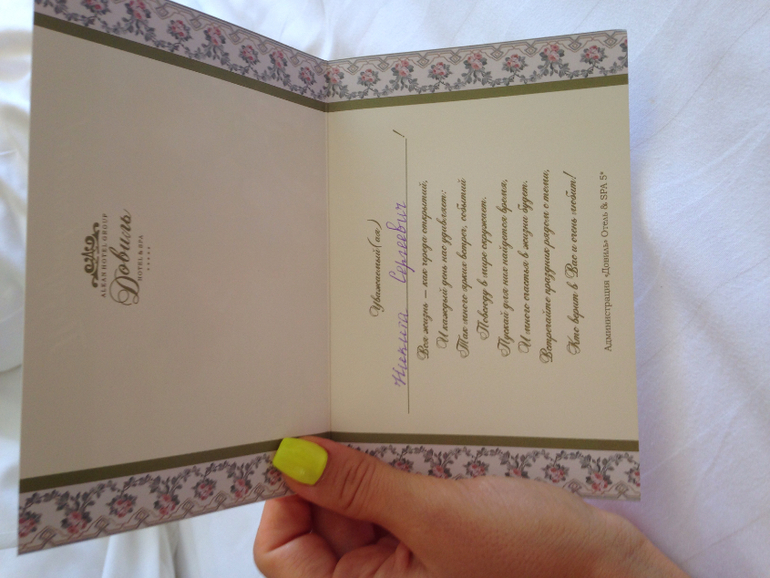 ALEAN HOTEL GROUP
Довиль
HOTEL & SPA
Уважаемый(ая)
Никита Сергеевич!
Вся жизнь – как города открытий,
И каждый день нас удивляет:
Так много ярких встреч, событий
Повсюду в мире окружает.
Пускай для них найдется время,
И много счастья в жизни будет.
Встречайте праздник рядом с теми,
Кто верит в Вас и очень любит!
Администрация «Довиль» Отель & SPA 5*